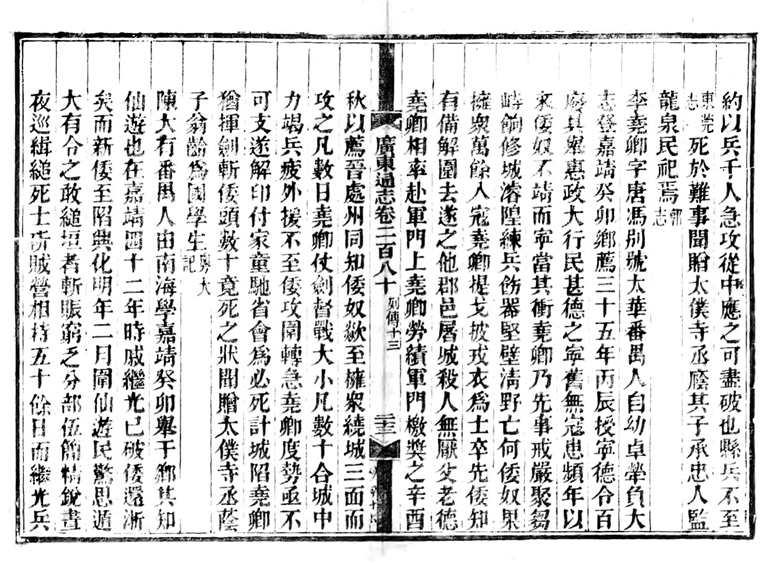 約以兵千人急攻從中應之可盡破也縣兵不至
東莞志死於難事聞贈太僕寺丞廕其子承忠人監
龍泉民祀焉郡志
李堯卿字唐馮別號太華番禺人自幼卓犖負大
志登嘉靖癸卯鄉薦三十五年丙辰授寧德令百
廢具舉惠政大行民甚德之寧舊無寇患頻年以
來倭奴不靖而寧當其衝堯卿乃先事戒嚴聚芻
峙餉修城濬隍練兵飭器堅壁淸野亡何倭奴果
擁衆萬餘入寇堯卿提戈披戎衣爲士卒先倭知
有備解圍去遂之他郡邑屠城殺人無厭父老德
堯卿相率赴軍門上堯卿勞績軍門檄獎之辛酉
廣東通志卷二百八十 列傳十三 三
秋以薦晉處州同知倭奴歘至擁衆繞城三面而
攻之凡數日堯卿仗劍督戰大小凡數十合城中
力竭兵疲外援不至倭攻圍轉急堯卿度勢亟不
可支遂解印付家童馳省會爲必死計城陷堯卿
猶揮劍斬倭頭數十竟死之狀聞贈太僕寺丞蔭
子翁齡爲國學生粵大記
陳大有番禺人由南海學嘉靖癸卯舉于鄉其知
仙遊也在嘉靖四十二年時戚繼光已破倭還浙
矣而新倭至陷興化明年二月圍仙遊民驚思遁
大有令之敢縋垣者斬賑窮乏分部伍簡精銳晝
夜巡緝縋死士斫賊營相持五十餘日而繼光兵